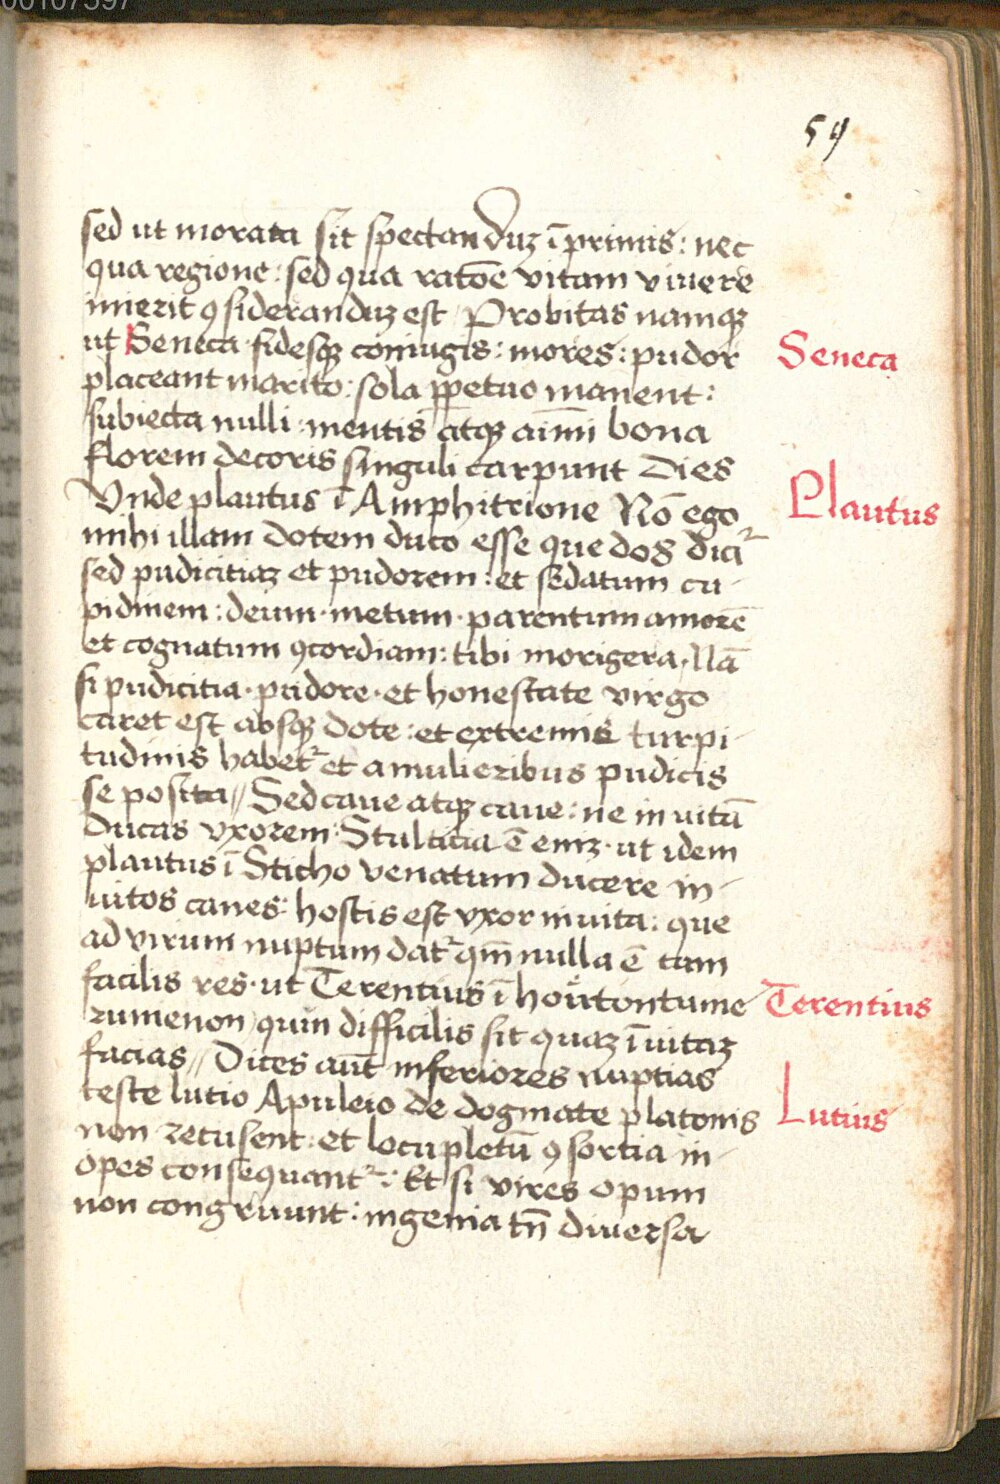 00107597
59
sed ut morata sit spectanduz ī primis : nec
qua regione : sed qua ratōe vitam viuere
inierit ꝯsideranduz est / Probitas namqꝫ
ut Seneca · fidesqꝫ coniugis : mores : pudor
Seneca
placeant marito : sola ꝑpetuo manent :
subiecta nulli : mentis atqꝫ aīmi bona
florem decoris singuli carpunt Dies
Vnde plautus ī Amphitrione Nō ego
Plautus
mihi illam dotem duco esse que dos dicit᷑
sed pudicitiaz et pudorem : et sedatum cu-
pidinem : deum · metum · parentum amorē
et cognatum ꝯcordiam : tibi morigera / Nā
si pudicitia · pudore · et honestate virgo
caret est absqꝫ dote : et extremis turpi-
tudinis habet᷑ et a mulieribus pudicis
se posita // Sed caue atqꝫ caue : ne inuitā
Ducas vxorem : Stulticia ē eniz · ut idem
plautus ī Sticho venatum ducere in-
uitos canes : hostis est vxor inuita : que
ad virum nuptum dat᷑ qm̄ nulla ē tam
facilis res · ut Terentius ī houtontume
Terentius
rumenon / quin difficilis sit quaz ī uitaz
facias // Dites aut̄ inferiores nuptias
teste lutio Apuleio de dogmate platonis
Lutius
non recusent : et locupletū ꝯsortia in-
opes consequant᷑ : Et si vires opum
non congruunt : ingenia tn̄ diuersa